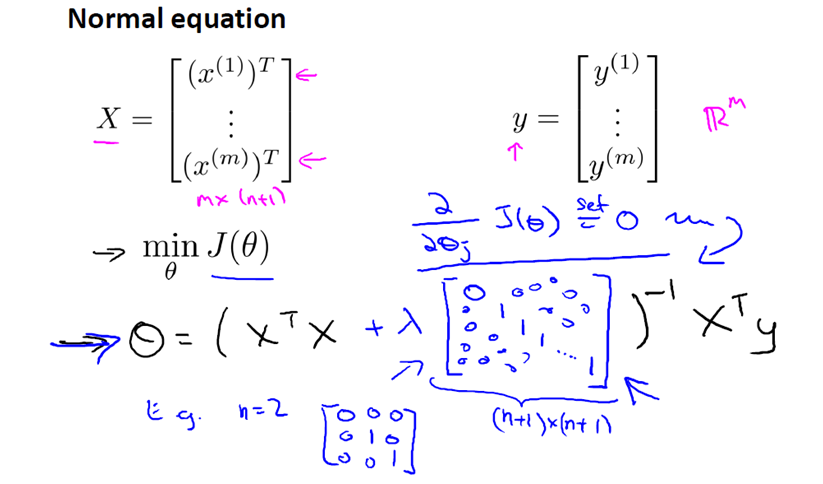 Normal equation
X = [ (x^(1))^T ⋮ (x^(m))^T ] ← ←
m×(n+1)
y = [ y^(1) ⋮ y^(m) ] ℝ^m
∂/∂θj J(θ) set = 0
→ min θ J(θ)
θ = ( X^T X + λ [ 0 0 0 0 0 1 1 1 ... 1 ] )^-1 X^T y
(n+1)×(n+1)
E.g. n=2 [ 0 0 0
0 1 0
0 0 1 ]